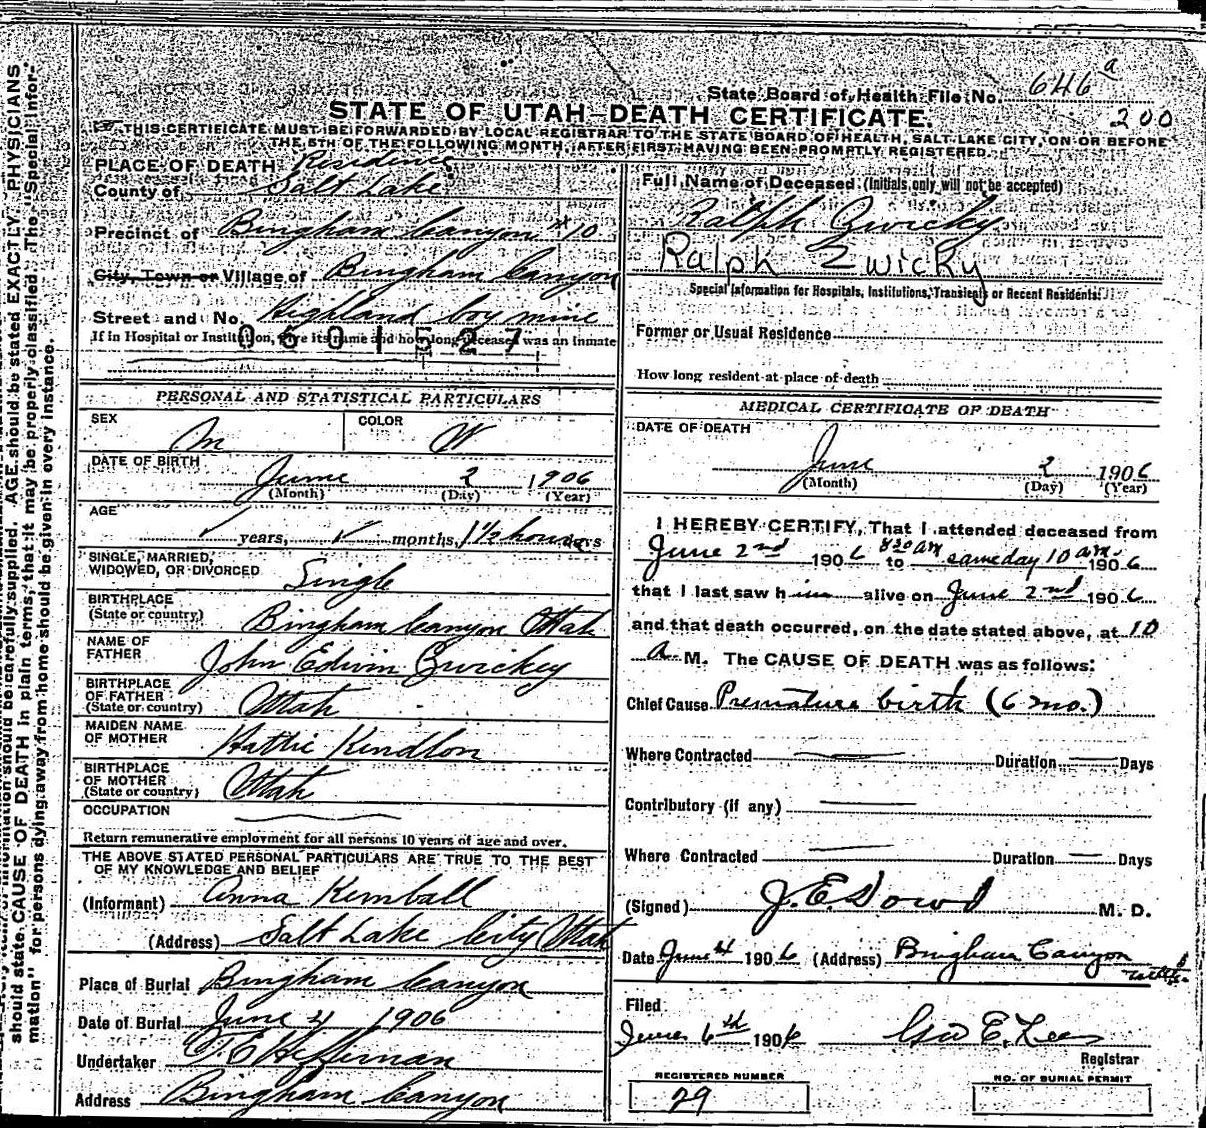 State Board of Health File No. 646 a
200
STATE OF UTAH—DEATH CERTIFICATE.
THIS CERTIFICATE MUST BE FORWARDED BY LOCAL REGISTRAR TO THE STATE BOARD OF HEALTH, SALT LAKE CITY, ON OR BEFORE
THE 5TH OF THE FOLLOWING MONTH, AFTER FIRST HAVING BEEN PROMPTLY REGISTERED.
PLACE OF DEATH Residence
County of Salt Lake
Precinct of Bingham Canyon #10
City, Town or Village of Bingham Canyon
Street and No. Highland boy mine
If in Hospital or Institution, give its name and how long deceased was an inmate
0601527
PERSONAL AND STATISTICAL PARTICULARS
SEX M COLOR W
DATE OF BIRTH June 2 1906
(Month) (Day) (Year)
AGE years, months, 1 1/2 hours days
SINGLE, MARRIED,
WIDOWED, OR DIVORCED Single
BIRTHPLACE
(State or country) Bingham Canyon Utah
NAME OF
FATHER John Edwin Zwickey
BIRTHPLACE
OF FATHER
(State or country) Utah
MAIDEN NAME
OF MOTHER Hattie Kendlon
BIRTHPLACE
OF MOTHER
(State or country) Utah
OCCUPATION
Return remunerative employment for all persons 10 years of age and over.
THE ABOVE STATED PERSONAL PARTICULARS ARE TRUE TO THE BEST
OF MY KNOWLEDGE AND BELIEF
(Informant) Anna Kimball
(Address) Salt Lake City Utah
Place of Burial Bingham Canyon
Date of Burial June 4 1906
Undertaker T. E. Heffernan
Address Bingham Canyon
Full Name of Deceased (Initials only will not be accepted)
Ralph Zwicky
Ralph Zwicky
Special Information for Hospitals, Institutions, Transients or Recent Residents:
Former or Usual Residence
How long resident at place of death
MEDICAL CERTIFICATE OF DEATH
DATE OF DEATH
June 2 1906
(Month) (Day) (Year)
I HEREBY CERTIFY, That I attended deceased from
June 2nd 1906 8 30 am to same day 10 a.m. 1906
that I last saw him alive on June 2nd 1906
and that death occurred, on the date stated above, at 10
a M. The CAUSE OF DEATH was as follows:
Chief Cause Premature birth (6 mo.)
Where Contracted Duration Days
Contributory (if any)
Where Contracted Duration Days
(Signed) J. E. Dowd M. D.
Date June 4 1906 (Address) Bingham Canyon Utah
Filed
June 6th 1906 Geo E. Lees
Registrar
REGISTERED NUMBER
29
NO. OF BURIAL PERMIT
should be carefully supplied. AGE should be stated EXACTLY. PHYSICIANS
should state CAUSE OF DEATH in plain terms, that it may be properly classified. The "Special Infor-
mation" for persons dying away from home should be given in every instance.